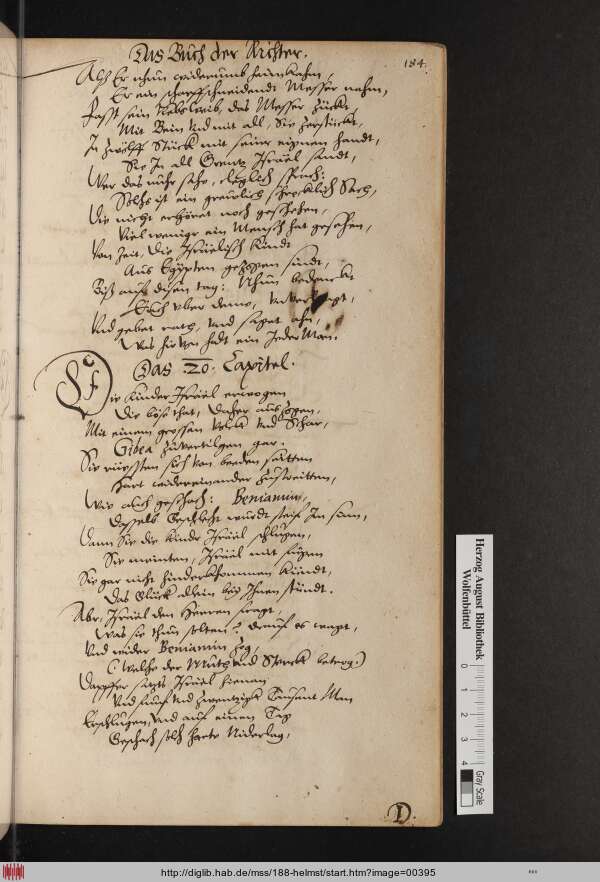 Das Buch der Richter.
184.
Alß Er nhun widerumb heimkahm,
Er ein scharpffschneidendt Messer nahm,
Fasst sein Kebsweib, das Messer zückt,
Mit Bein Und mit all, Sie zerstückt,
In zwölff Stück mit seiner eignen handt,
Sie In all Grentz Israël sandt,
Wer das nuhr sahe, cläglich sprach:
Solchs ist ein greulich schrecklich Sach,
Die nicht erhöret noch geschehen,
Viel weniger ein Mensch hat gesehen,
Von Zeit, Die Israëlisch Kindt
Aus Egÿpten gezogen sindt,
Biß auff disen tag: Nhun bedenckt
Euch vber deme,
Und gebet rath, Und saget ahn,
Was hirvon helt ein Jeder Man.
Das .20. Capitel.
Die Kinder Israël erwogen
Die böse that, Daher auszogen,
Mit einem grossen Volck Und Schar,
Gibea zuvertilgen gar.
Sie rüssten sich von beeden seitten
Hart widereinander zustreitten,
Wie auch geschach: Beniamin,
Dasselb Geschlecht wurdt steif In sinn,
Dann Sie die Kinder Israël schlugen,
Sie meinten, Israël mit fügen
Sie gar nicht hinderkommen Kündt,
Das Glück allein beÿ Ihnen stündt.
Aber, Israël den Herren fragt,
Was sie thun solten? drauf es wagt,
Und wider Beniamin zog,
(Welche der Muth und Sterck betrog.)
Dapffer setzts Israël hienan
Und fünf Und zwentzigk Tausent Man
Erschlugen, Und auf einen Tag
Geschach solch harte Niderlag,
D.
Herzog August Bibliothek
Wolfenbüttel
0 1 2 3 4
Gray Scale
http://diglib.hab.de/mss/188-helmst/start.htm?image=00395